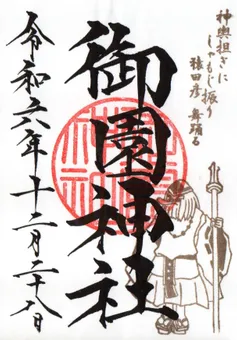 神輿担ぎに
しゃもじ振り
猿田彦舞踊る
御園神社
令和六年十二月二十八日